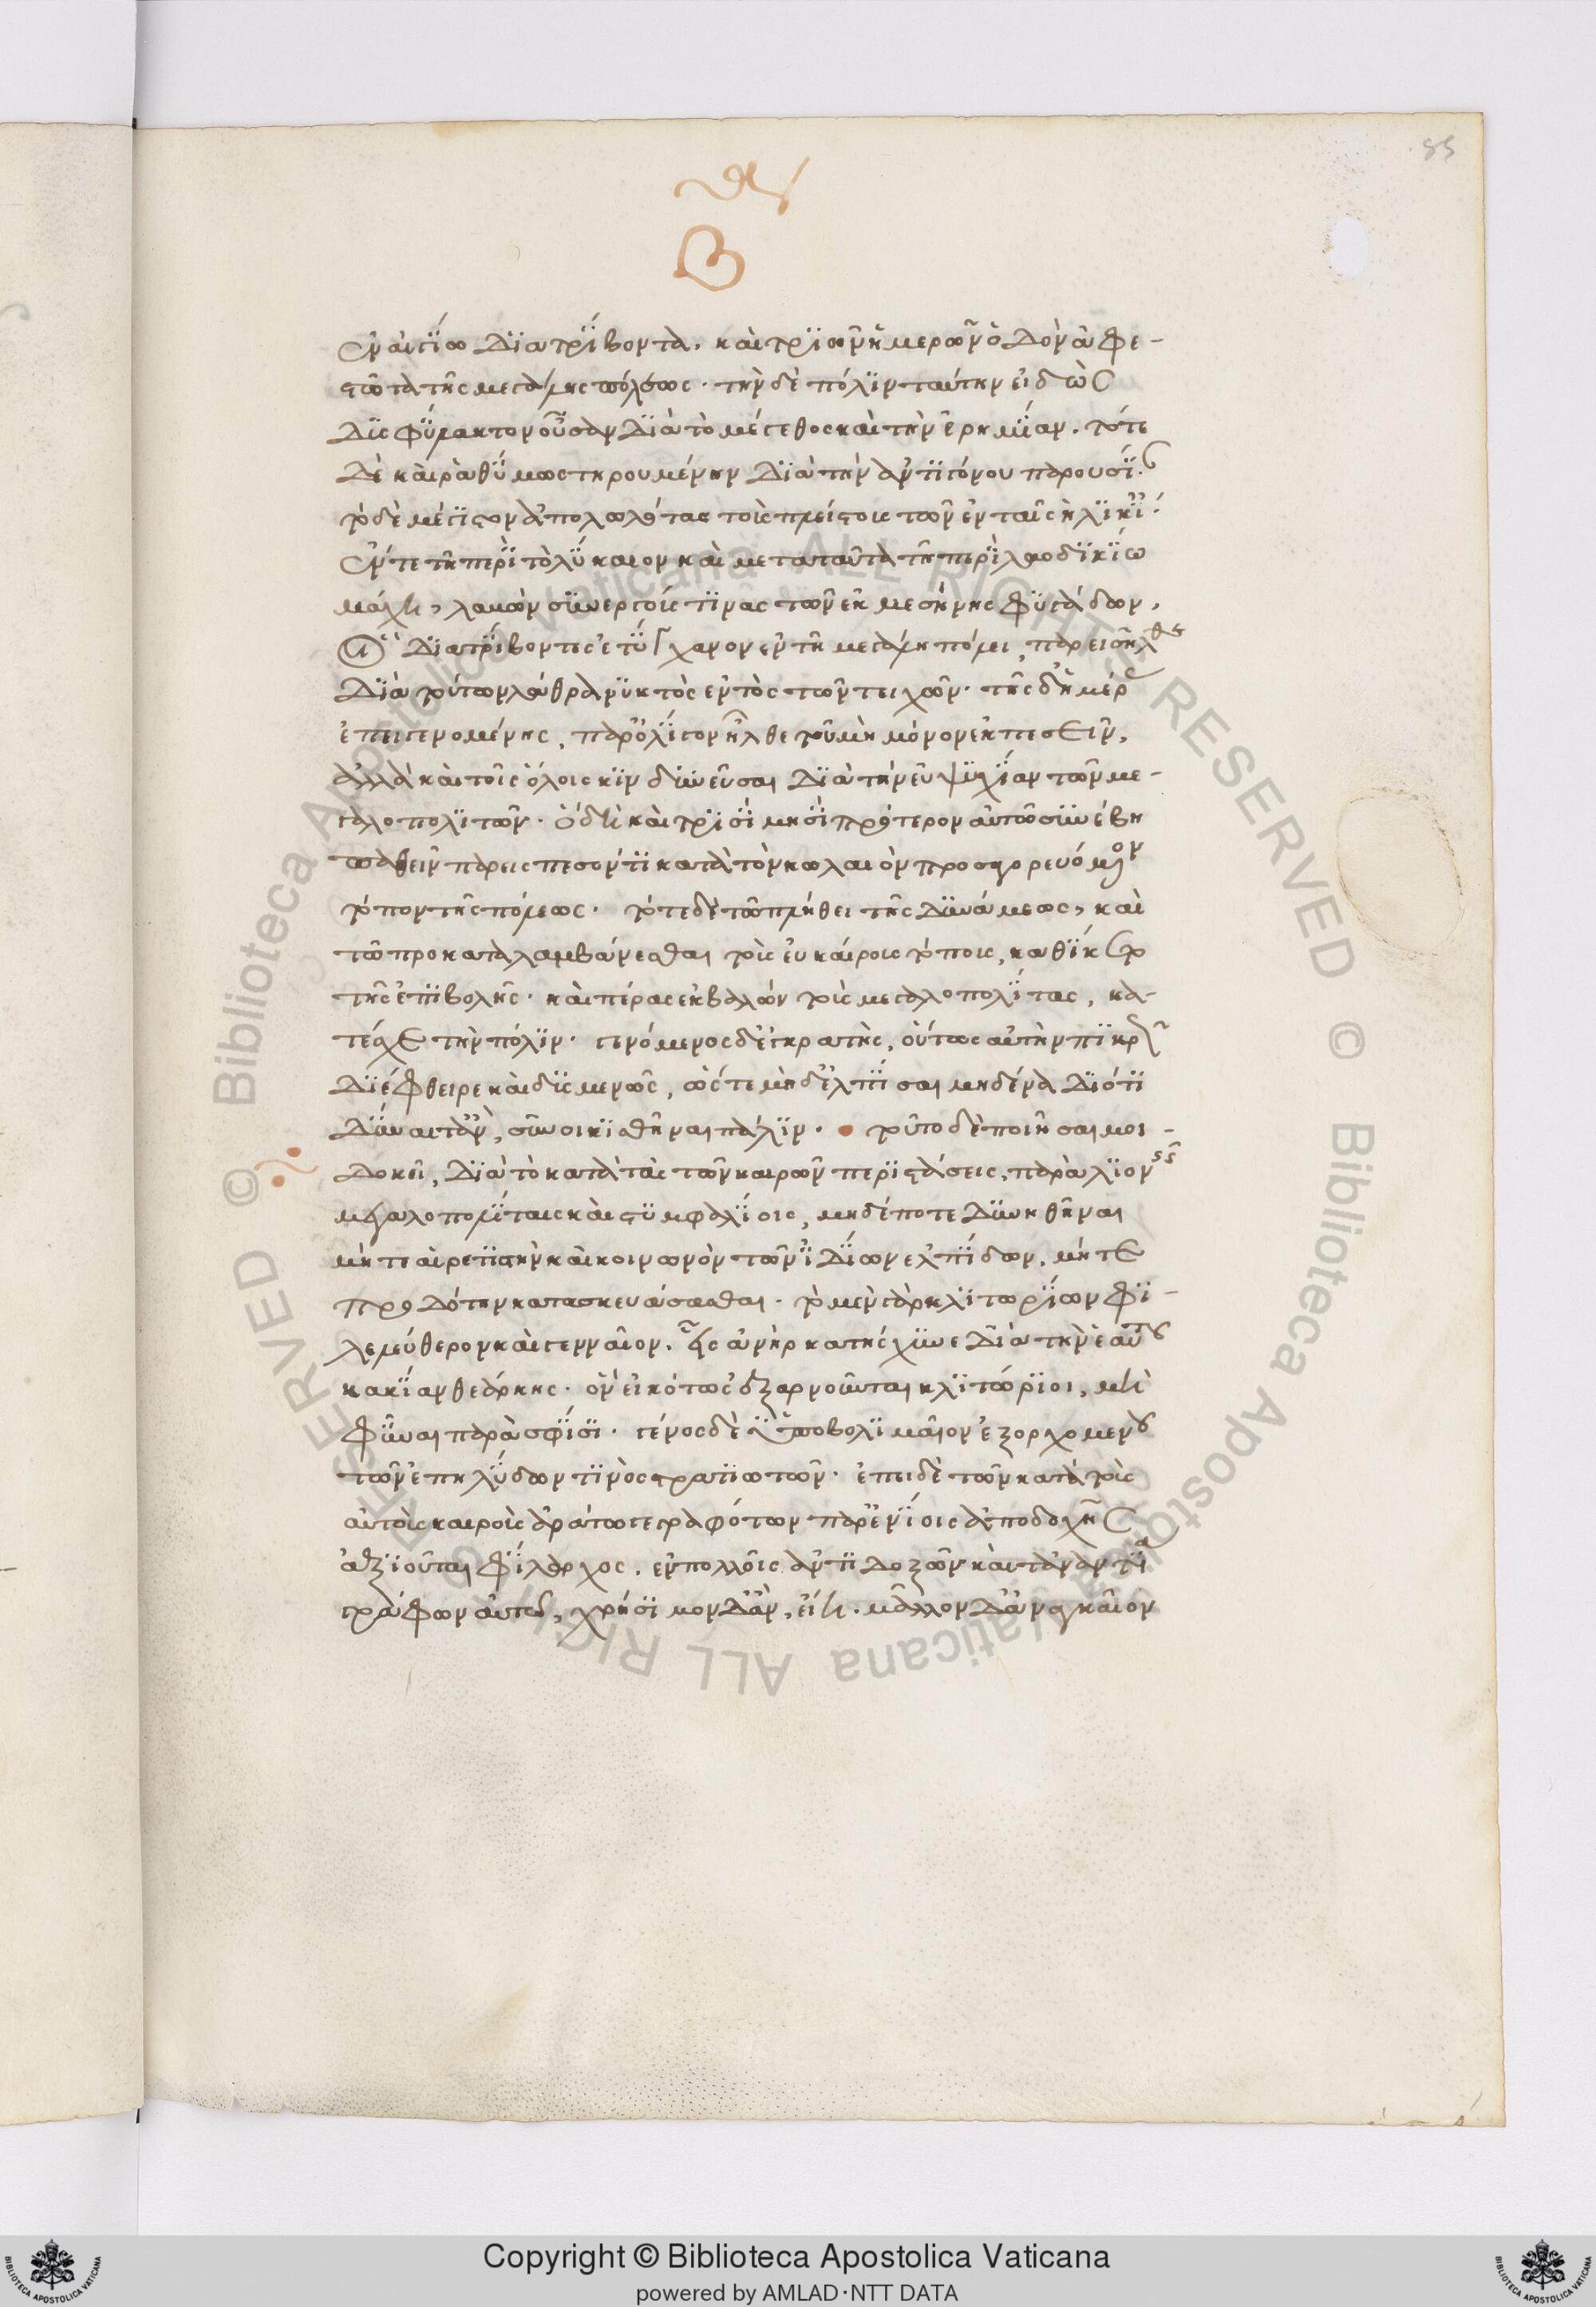 85
Β
ἐν αἰγίω διατρίβοντα, καὶ τριῶν ἡμερῶν ὁδὸν ἀφε-
στῶτα τῆς μεγάλης πόλεως· τὴν δὲ πόλιν ταύτην εἰδὼς
δυσφύλακτον οὖσαν διὰ τὸ μέγεθος καὶ τὴν ἐρημίαν. τότε
δὲ καὶ ῥαθύμως τηρουμένην διὰ τὴν ἀντιγόνου παρουσί
τὸ δὲ μέγιστον ἀπολωλότας τοὺς πλείστους τῶν ἐν ταῖς ἡλικί
ἔν τε τῆ περὶ τὸ λύκαιον καὶ μετὰ ταῦτα τῆ περὶ λαοδικίω
μάχη, λαβὼν συνεργούς τινας τῶν ἐκ μεσήνης φυγάδων,
οἳ διατρίβοντες ἐτύγχανον ἐν τῆ μεγάλη πόλει, παρεισῆλθε
διὰ τούτων λάθρα νυκτὸς ἐντὸς τῶν τειχῶν· τῆς δ' ἡμέρ
ἐπιγενομένης, παρ' ὀλίγον ἦλθε τοῦ μὴ μόνον ἐκπεσεῖν,
ἀλλὰ καὶ τοῖς ὅλοις κινδυνεῦσαι διὰ τὴν εὐψυχίαν τῶν με-
γαλοπολιτῶν· ὃ δὴ καὶ τρισὶ μησὶ πρότερον αὐτῶ συνέβη
παθεῖν παρεισπεσόντι κατὰ τὸν κωλαιὸν προσαγορευόμενον
τόπον τῆς πόλεως· τότε δὲ τῶ πλήθει τῆς δυνάμεως, καὶ
τῶ προκαταλαμβάνεσθαι τοὺς εὐκαίρους τόπους, καθίκετο
τῆς ἐπιβολῆς· καὶ πέρας ἐκβαλὼν τοὺς μεγαλοπολίτας, κα-
τέσχε τὴν πόλιν· γενόμενος δ' ἐγκρατὴς, οὕτως αὐτὴν πικρῶς
διέφθειρε καὶ δυσμενῶς, ὥστε μηδ' ἐλπίσαι μηδένα διότι
δύναιτ' ἂν, συνοικισθῆναι πάλιν· τοῦτο δὲ ποιῆσαι μοι-
δοκεῖ, διὰ τὸ κατὰ τὰς τῶν καιρῶν περιστάσεις, παρὰ λιον
μεγαλοπολίταις καὶ στυμφαλίοις, μηδέποτε δυνηθῆναι
μήτε αἱρετιστὴν καὶ κοινωνὸν τῶν ἰδίων ἐλπίδων, μήτε
προδότην κατασκευάσασθαι· τὸ μὲν γὰρ κλιτωρίων φι-
λελεύθερον καὶ γενναῖον, εἷς ἀνὴρ κατήσχυνε διὰ τὴν ἑαυτοῦ
κακίαν θεάρκης· ὃν εἰκότως ἐξαρνοῦνται κλιτώριοι, μὴ
φῦναι παρὰ σφίσι· γένος δὲ ὑποβολιμαῖον ἐξ ὀρχομενοῦ
τῶν ἐπηλύδων τινὸς στρατιωτῶν· ἐπεὶ δὲ τῶν κατὰ τοὺς
αὐτοὺς καιροὺς ἀράτω γεγραφότων παρ' ἐνίοις ἀποδοχῆς
ἀξιοῦται φίλαρχος, ἐν πολλοῖς ἀντιδοξῶν καὶ τἀναντία
γράφων αὐτῶ, χρήσιμον δ' ἂν, εἴη. μᾶλλον δ' ἀναγκαῖον
Copyright © Biblioteca Apostolica Vaticana
powered by AMLAD·NTT DATA